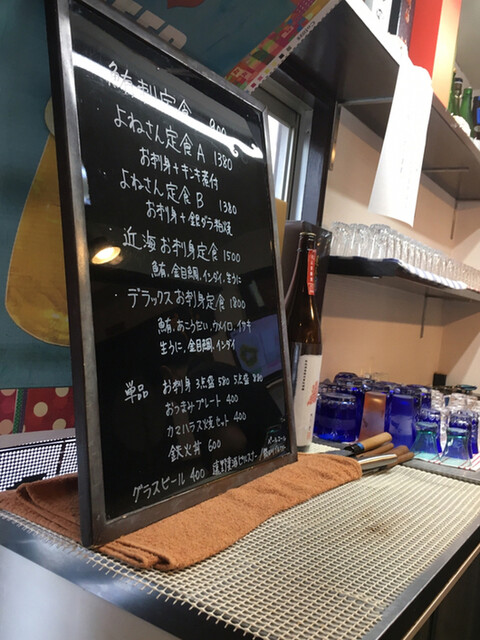 鮪刺定食 900
よねさん定食A 1380
お刺身+キンキ煮付
よねさん定食B 1380
お刺身+銀ダラ粕焼
・近海お刺身定食 1500
鮪、金目鯛、イシダイ、生うに
・デラックスお刺身定食 1800
鮪、あこうだい、ウメイロ、イサキ
生うに、金目鯛、イシダイ
単品 お刺身 3点盛 580 5点盛 880
おつまみプレート 400
カマハラス焼セット 400
鉄火丼 600
グラスビール 400